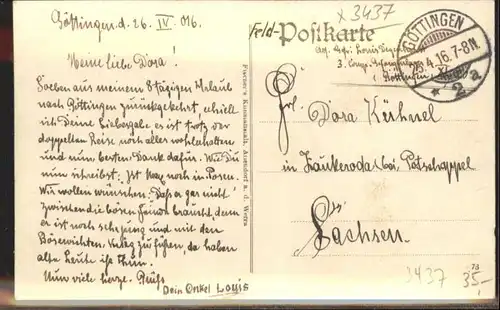 Göttingen. d. 26. IV. 016.
Meine liebe Dora!
Soeben aus meinem 8 tägigen Urlaub
nach Göttingen zurückgekehrt, erhielt
ich Deine Liebesgabe. es ist trotz der
doppelten Reise noch alles wohlerhalten
und nun besten Dank dafür. Wie Du
nun schreibst: Ist noch in Posen.
Wir wollen wünschen, daß er gar nicht
zwischen die bösen Feinde braucht, denn
er ist noch und mit den
Bösewichten Krieg zu führen, da haben
alte Leute zu thun.
Nun viele herzl. Grüße
Dein Onkel Louis
Fürtner's Kunstanstalt, Auendorf a. d. Werra
x 3437
Feld-Postkarte
3. Comp.
Göttingen
GÖTTINGEN
16. 7-8 N.
Frl. Dora Küchesel
in Zauckeroda bei Potschappel
Sachsen.
3437
73
35,-